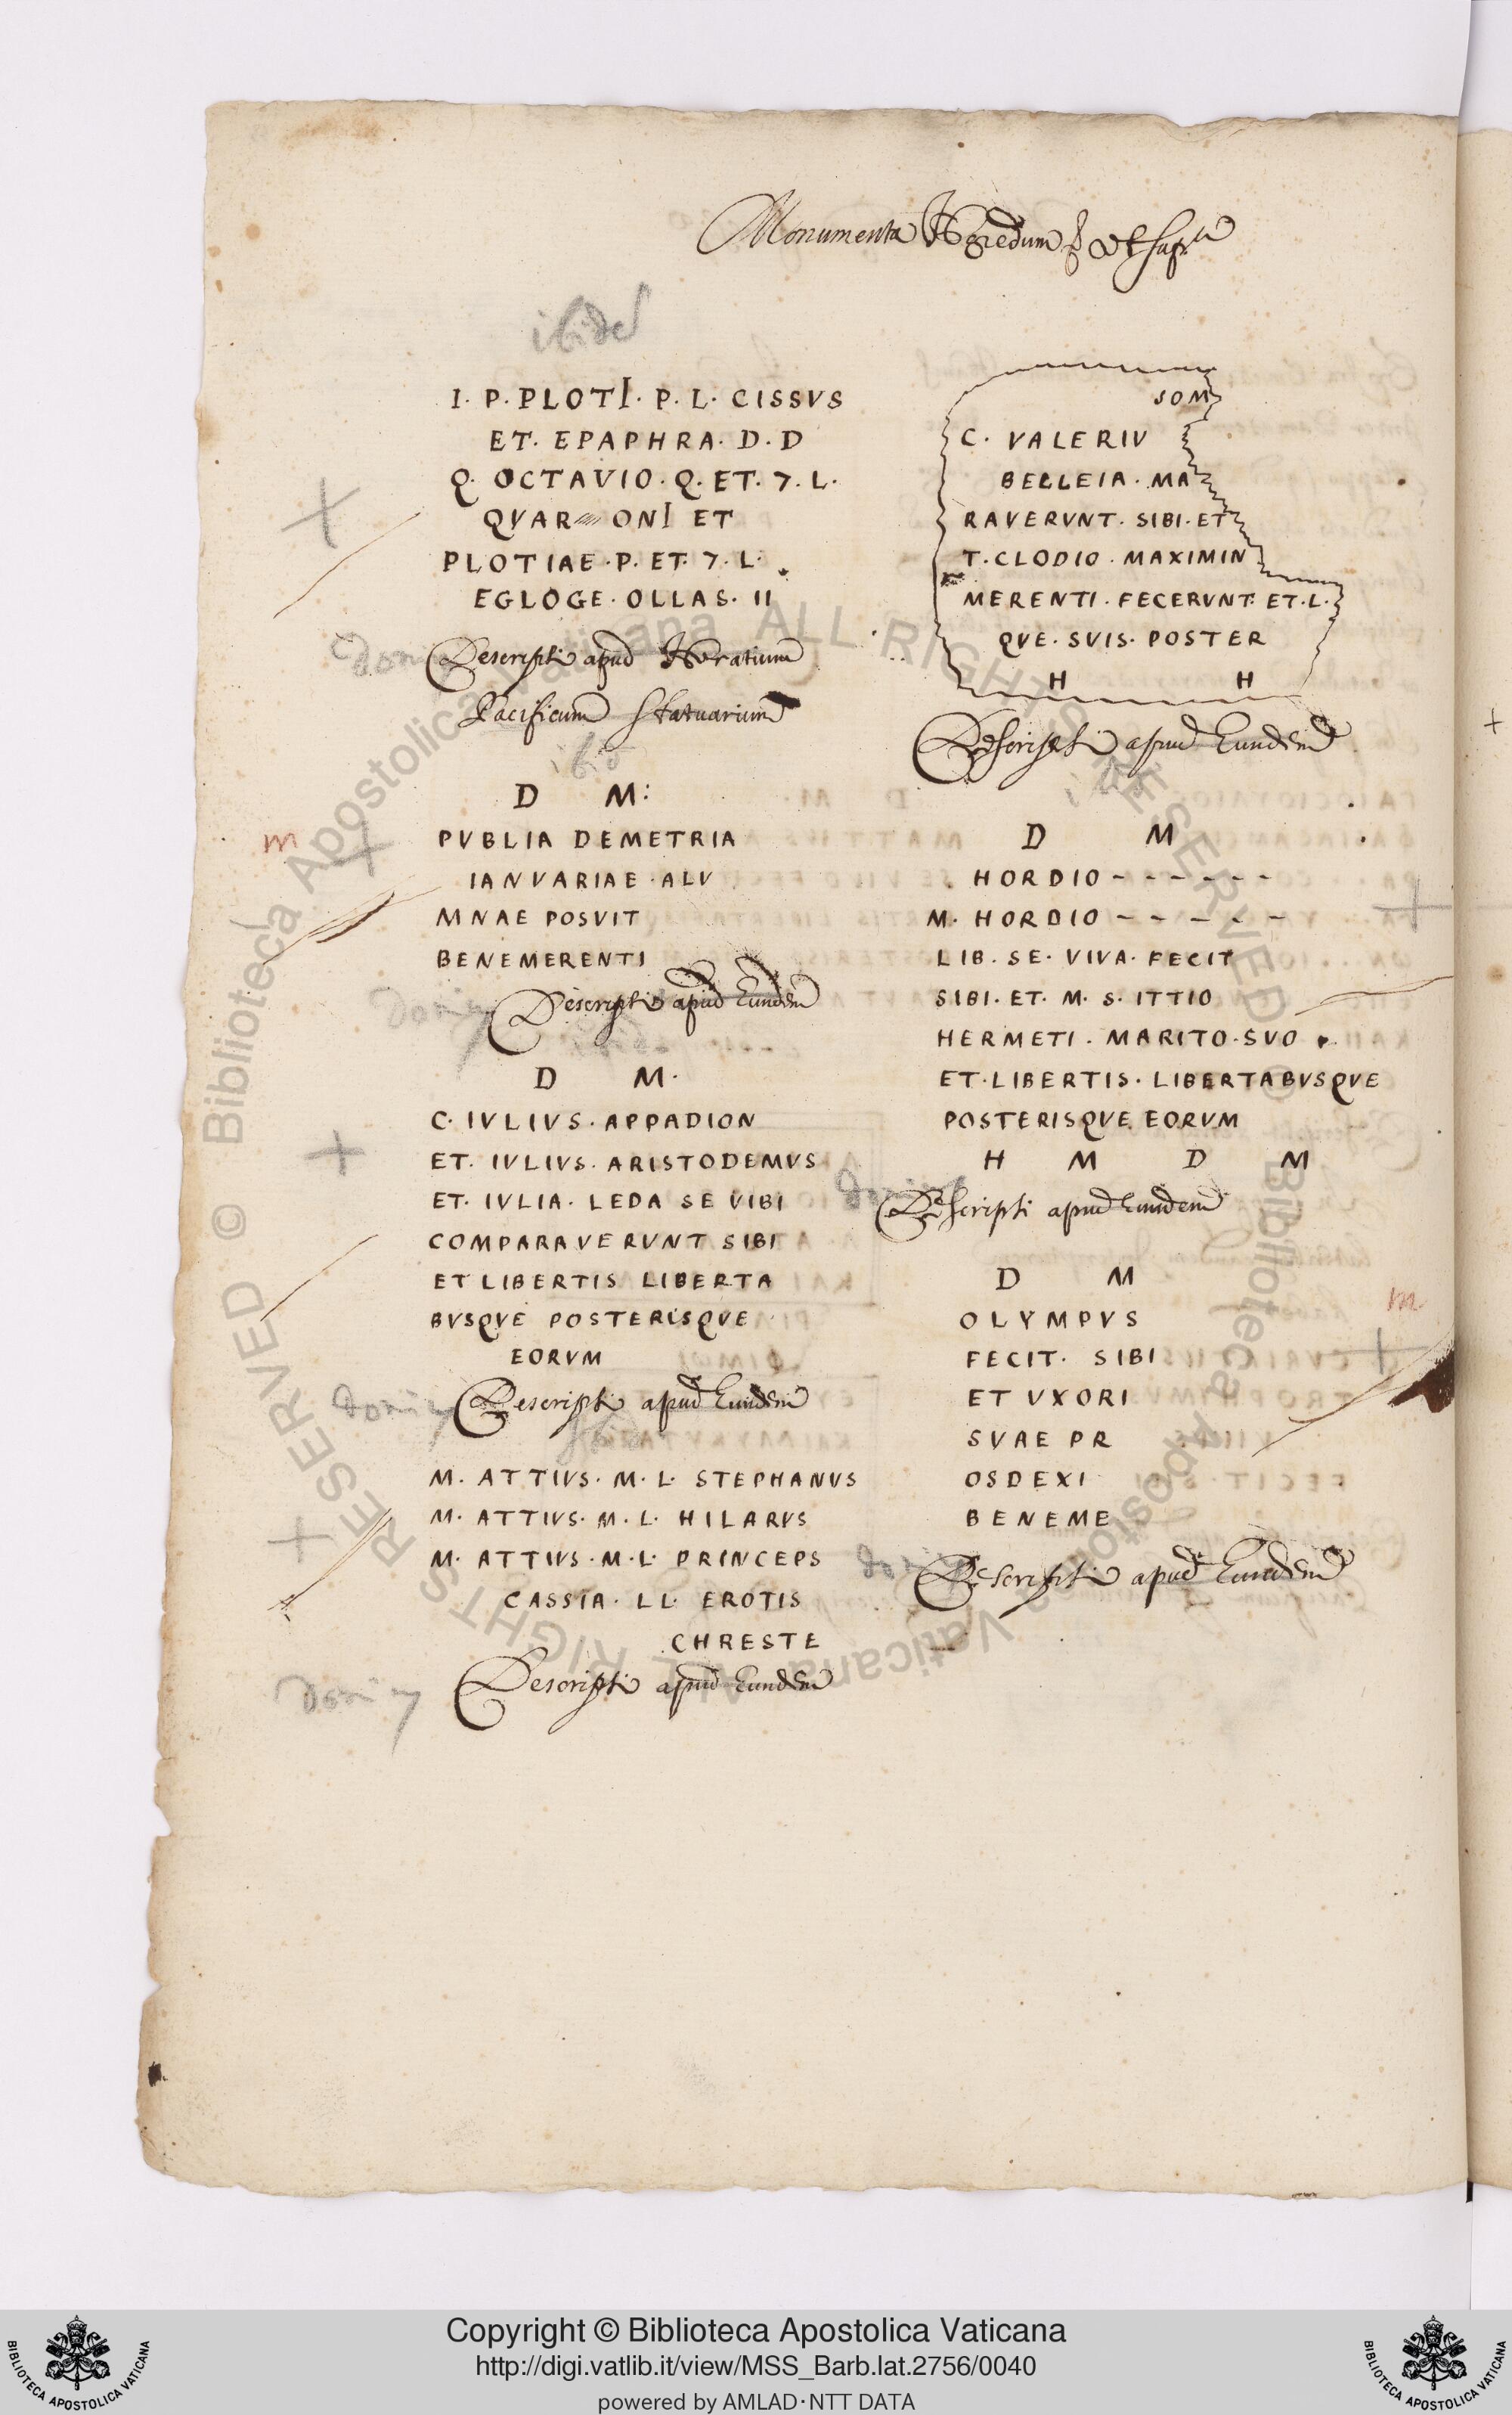 Monumenta Heredum & ut supra
ibidē
I. P. PLOTI. P. L. CISSVS
ET. EPAPHRA. D. D
Q. OCTAVIO. Q. ET. 7. L.
QVAR ONI ET
PLOTIAE. P. ET. 7. L.
EGLOGE. OLLAS. II
Descripti apud Horatium
Pacificum statuarium
ibid
D M:
PVBLIA DEMETRIA
IANVARIAE. ALV
MNAE POSVIT
BENEMERENTI
m
Descripti apud Eundem
D M.
C. IVLIVS. APPADION
ET. IVLIVS. ARISTODEMVS
ET. IVLIA. LEDA SE VIBI
COMPARAVERVNT SIBI
ET LIBERTIS LIBERTA
BVSQVE POSTERISQVE
EORVM
doni
Descripti apud Eundem
M. ATTIVS. M. L. STEPHANVS
M. ATTIVS. M. L. HILARVS
M. ATTIVS. M. L. PRINCEPS
CASSIA. LL. EROTIS
CHRESTE
doni
Descripti apud Eundem
SOM
C. VALERIV
BELLEIA. MA
RAVERVNT. SIBI. ET
T. CLODIO. MAXIMIN
MERENTI. FECERVNT. ET. L.
QVE. SVIS. POSTER
H H
Descripti apud Eundem
D M
HORDIO - - - - - -
M. HORDIO - - - - -
LIB. SE. VIVA. FECIT
SIBI. ET. M. S. ITTIO
HERMETI. MARITO. SVO
ET. LIBERTIS. LIBERTABVSQVE
POSTERISQVE EORVM
H M D M
Descripti apud Eundem
D M
OLYMPVS
FECIT. SIBI
ET VXORI
SVAE PR
OSDEXI
BENEME
m
Descripti apud Eundem
Biblioteca Apostolica Vaticana ALL RIGHTS RESERVED ©
Biblioteca Apostolica Vaticana ALL RIGHTS RESERVED ©
Copyright © Biblioteca Apostolica Vaticana
http://digi.vatlib.it/view/MSS_Barb.lat.2756/0040
powered by AMLAD·NTT DATA
BIBLIOTECA APOSTOLICA VATICANA
BIBLIOTECA APOSTOLICA VATICANA